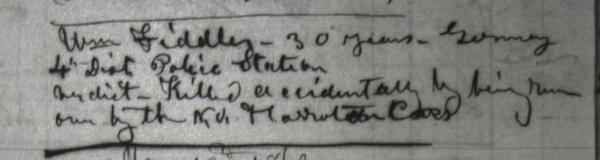 Wm Fiddley - 30 years - Germany
4" Dist Police Station
verdict - Killed accidentally by being run
over by the N.O. Carrollton Cars